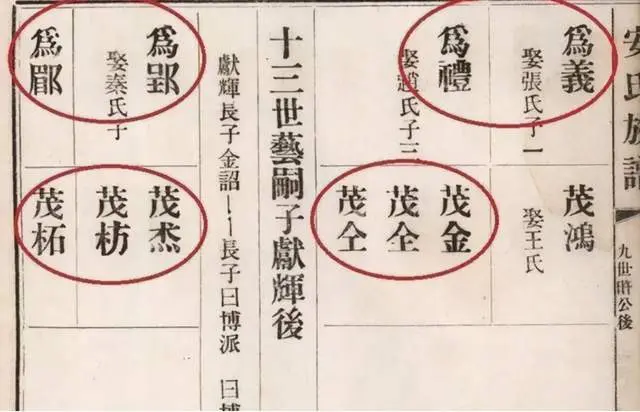 安氏族譜
九世公後
爲義
娶張氏子一
爲禮
娶趙氏子三
茂鴻
娶王氏
茂金
茂全
茂仝
十三世藝嗣子獻輝後
獻輝長子金詔——長子曰博派 曰博
爲郢
娶秦氏子
爲
茂杰
茂枋
茂柘